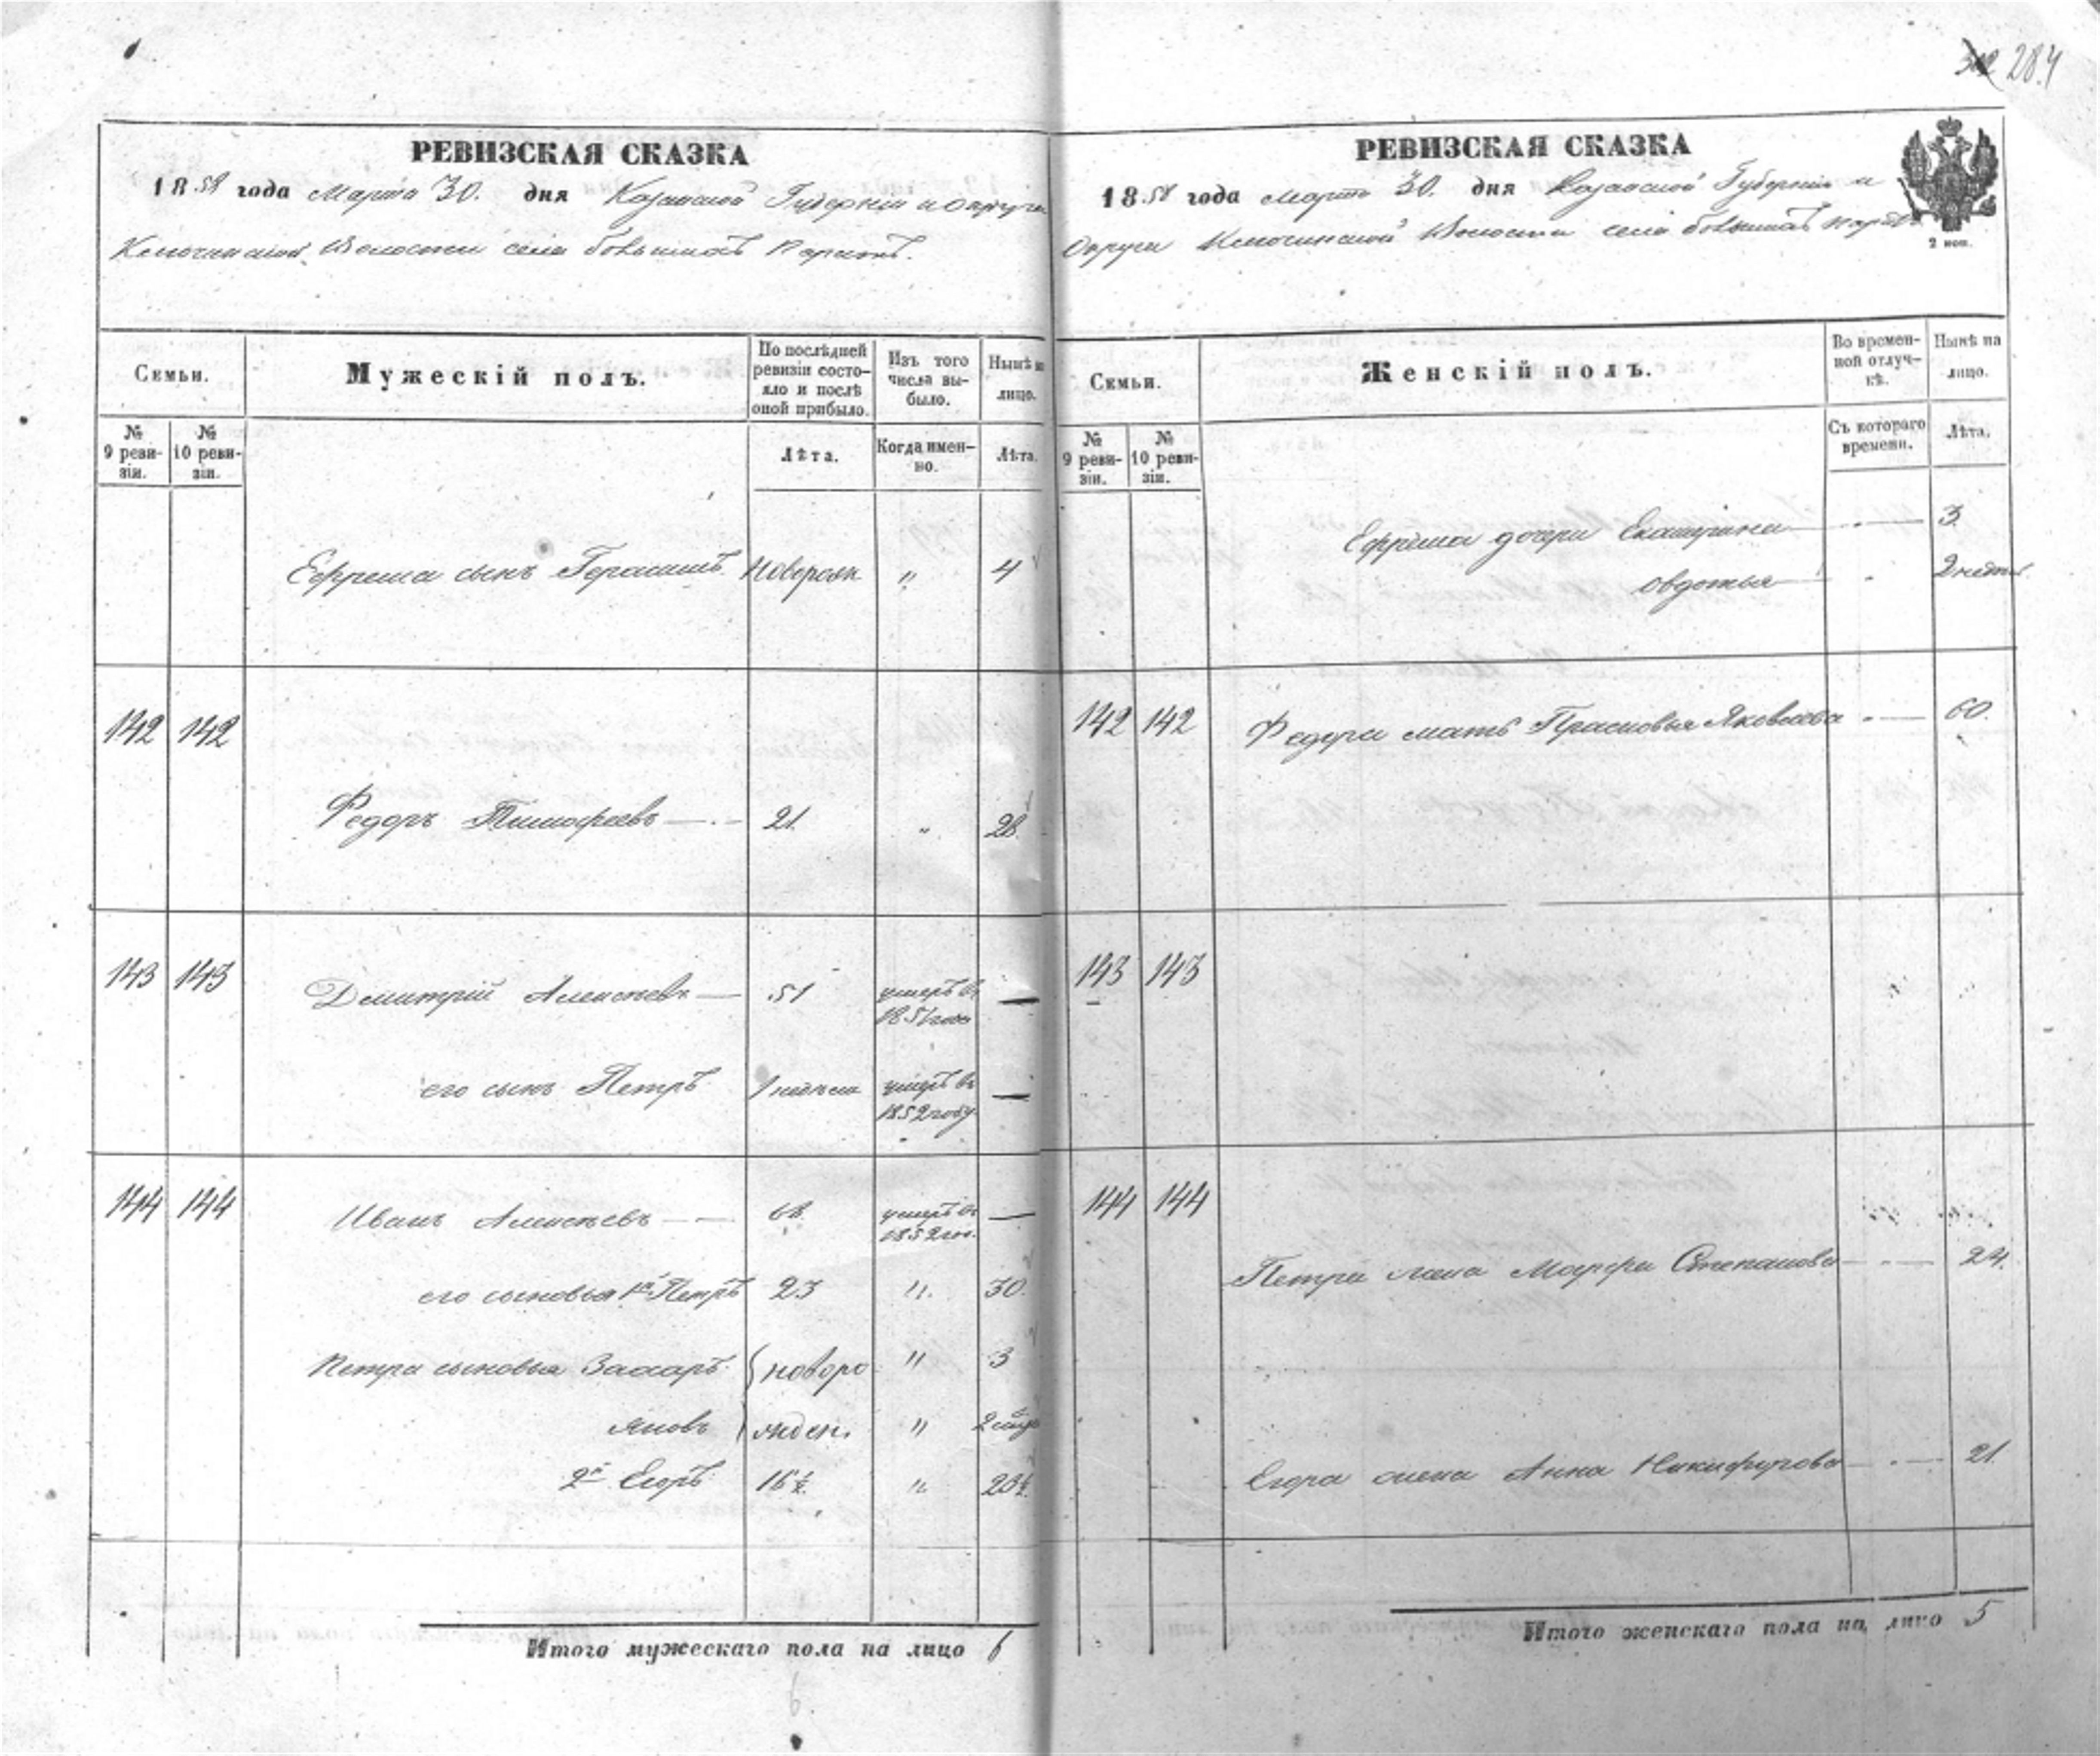 284
РЕВИЗСКАЯ СКАЗКА
1858 года Марта 30. дня Казанской Губернии и округа
Ключинской Волости села Большихъ
Семьи.
Мужескій полъ.
По послѣдней ревизіи состояло и послѣ оной прибыло.
Изъ того числа выбыло.
Нынѣ на лицо.
№ 9 ревизіи.
№ 10 ревизіи.
Лѣта.
Когда именно.
Лѣта.
Ефрема сынъ Герасимъ новорож. " 4
142 142
Федоръ Тимофеевъ 21. " 28
143 143 Дмитрій Алексѣевъ 51 умеръ въ 1851 году —
его сынъ Петръ 1 недѣли умеръ въ 1852 году —
144 144 Иванъ Алексѣевъ 68 умеръ въ 1852 го. —
его сыновья 1й Петръ 23 " 30.
Петра сыновья Захаръ новоро " 3
Яковъ жден. "
2й Егоръ 16½ " 23½
Итого мужескаго пола на лицо 6
РЕВИЗСКАЯ СКАЗКА
1858 года Марта 30. дня Казанской Губерніи и
Округи Ключинской Волости села Большихъ
2 коп.
Семьи.
Женскій полъ.
Во временной отлучкѣ.
Нынѣ на лицо.
№ 9 ревизіи.
№ 10 ревизіи.
Съ котораго времени.
Лѣта.
Ефрема дочери Екатерина 3.
Овдотья
142 142 Федора мать Прасковья Яковлева 60.
143 143
144 144
Петра жена Марфа Степанова 24.
Егора жена Анна Никифорова 21.
Итого женскаго пола на лицо 5